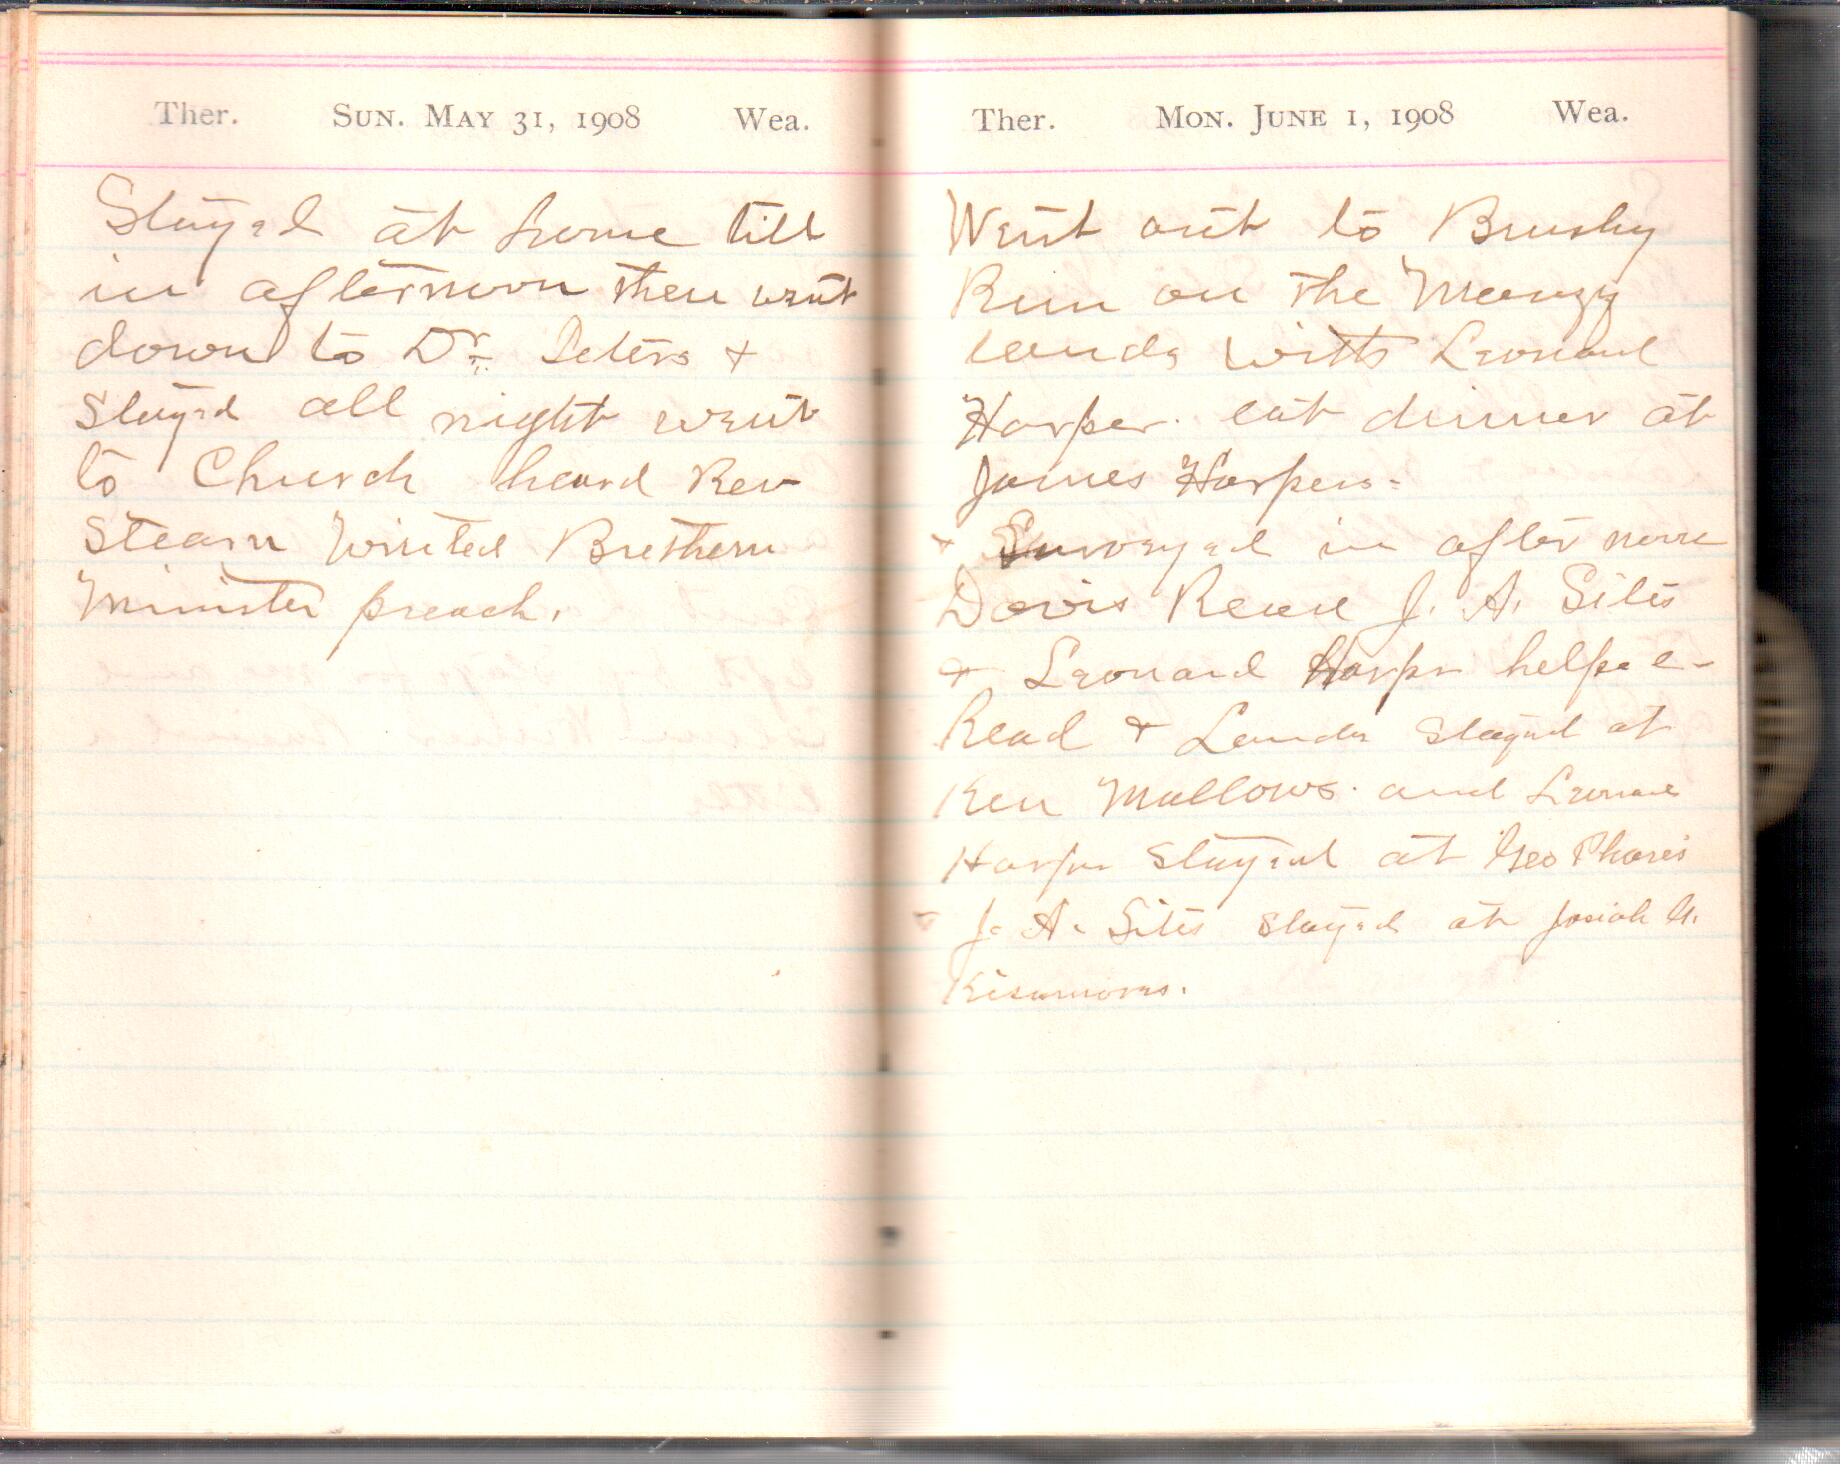 Ther. Sun. May 31, 1908 Wea.
Stayed at home till
in afternoon then went
down to Dr. Peters &
stayed all night went
to Church heard Rev
Stearn United Brethern
Minister preach.
Ther. Mon. June 1, 1908 Wea.
Went out to Brushy
Run on the
lands with Leonard
Harper. eat dinner at
James Harpers.
& Surveyed in after noon
Davis J. A. Sites
& Leonard Harper helpe
& stayed at
Mallows. and Leonard
Harper stayed at Geo Phares
J. A. Sites stayed at Josiah
Kisamores.